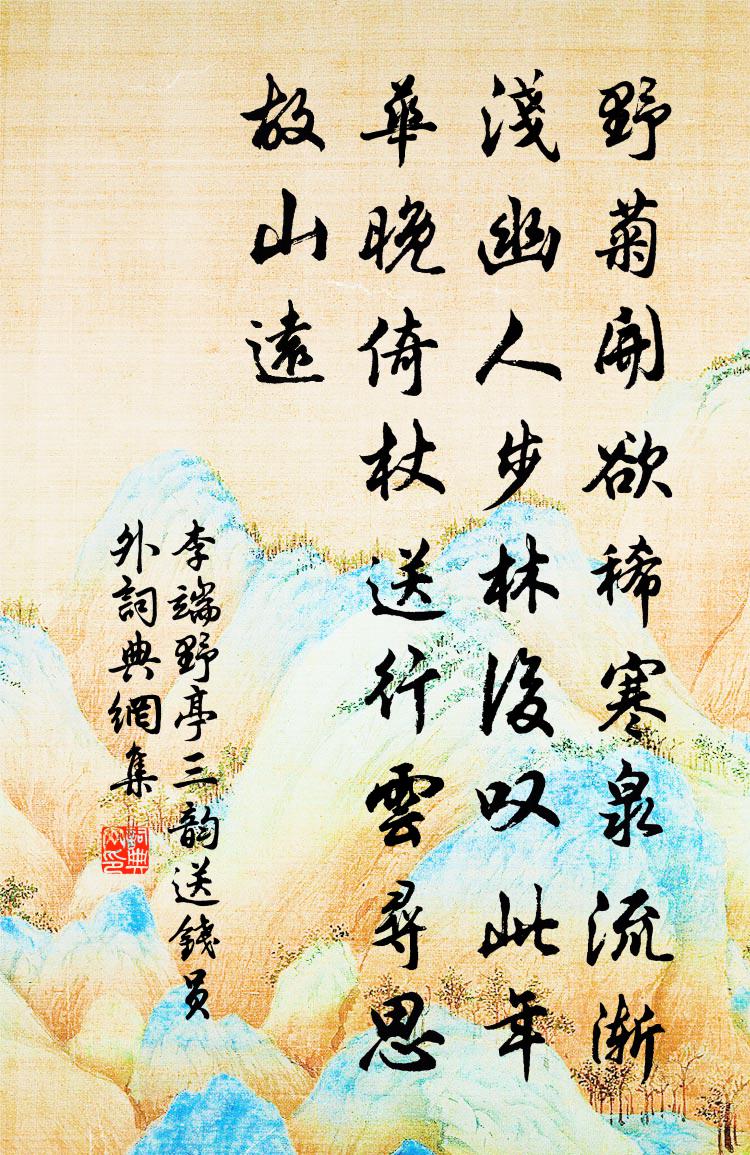 野菊開欲稀寒泉流漸
淺幽人步林後叹此年
華晚倚杖送行雲尋思
故山遠
李端野亭三韵送錢員
外詞典網集
詞典网印